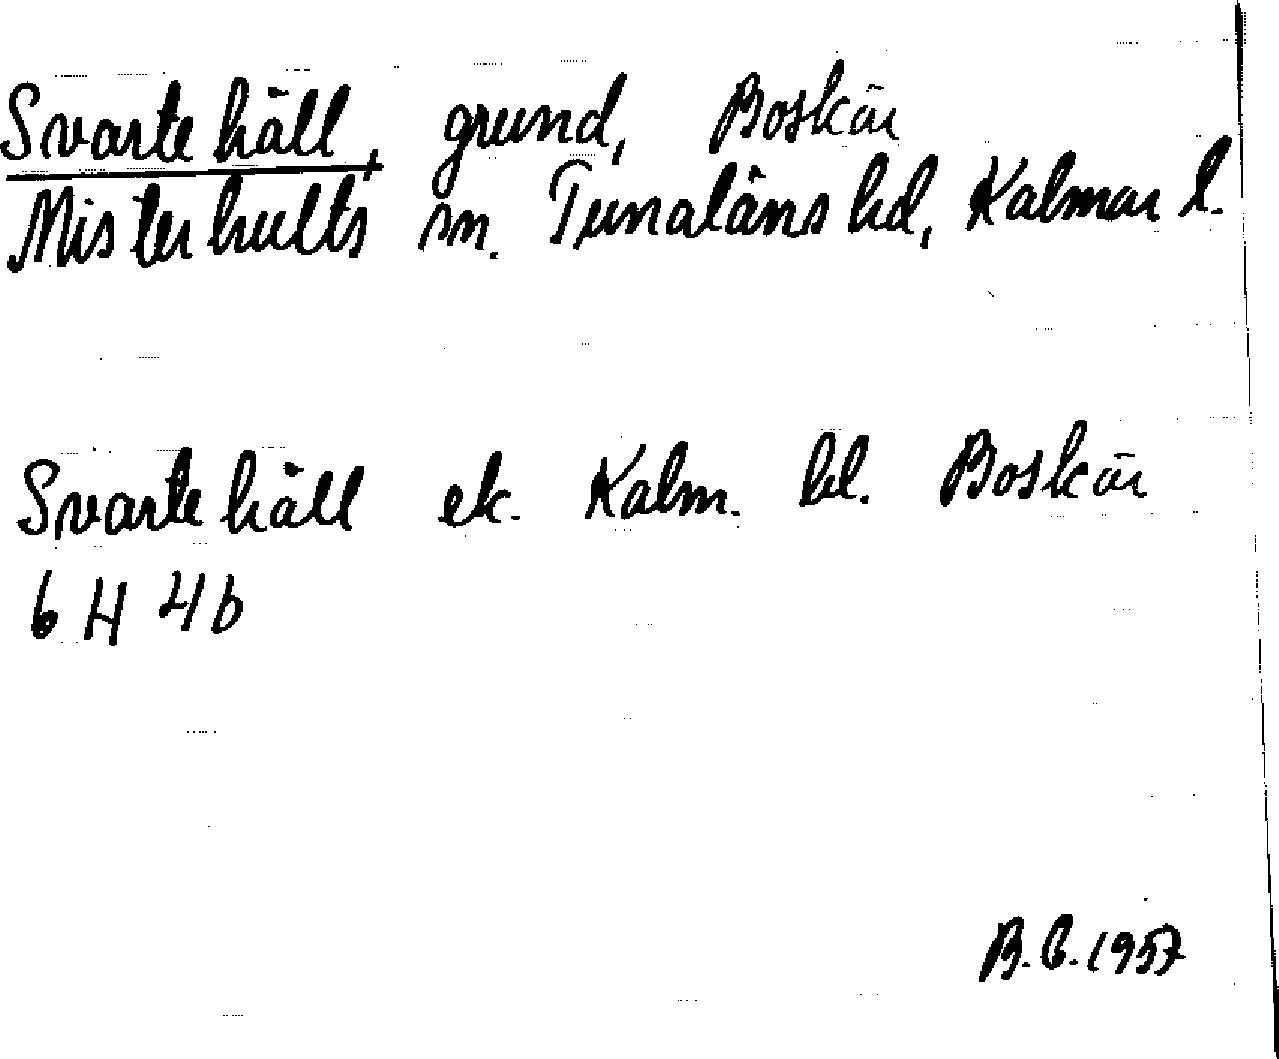 Svartehäll, grund, Boskär
Misterhults sn. Tunaläns hd, Kalmar l.
Svartehäll ek. Kalm. bl. Boskär
6 H 4b
B.B. 1957